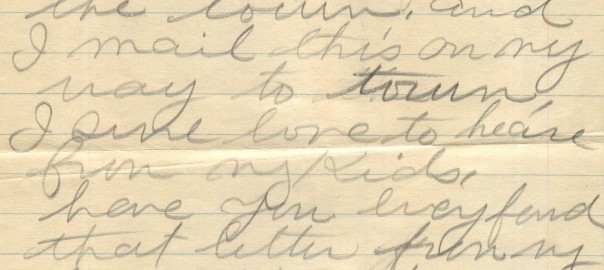 the town, and
I mail this on my
way to town,
I sure love to heare
from my Kids,
have you every found
that letter from my